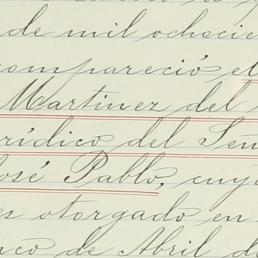 de mil ochocie
compareció, el
Martinez del
rídico del Señ
José Pablo, cuyo
es otorgado en
nco de Abril d